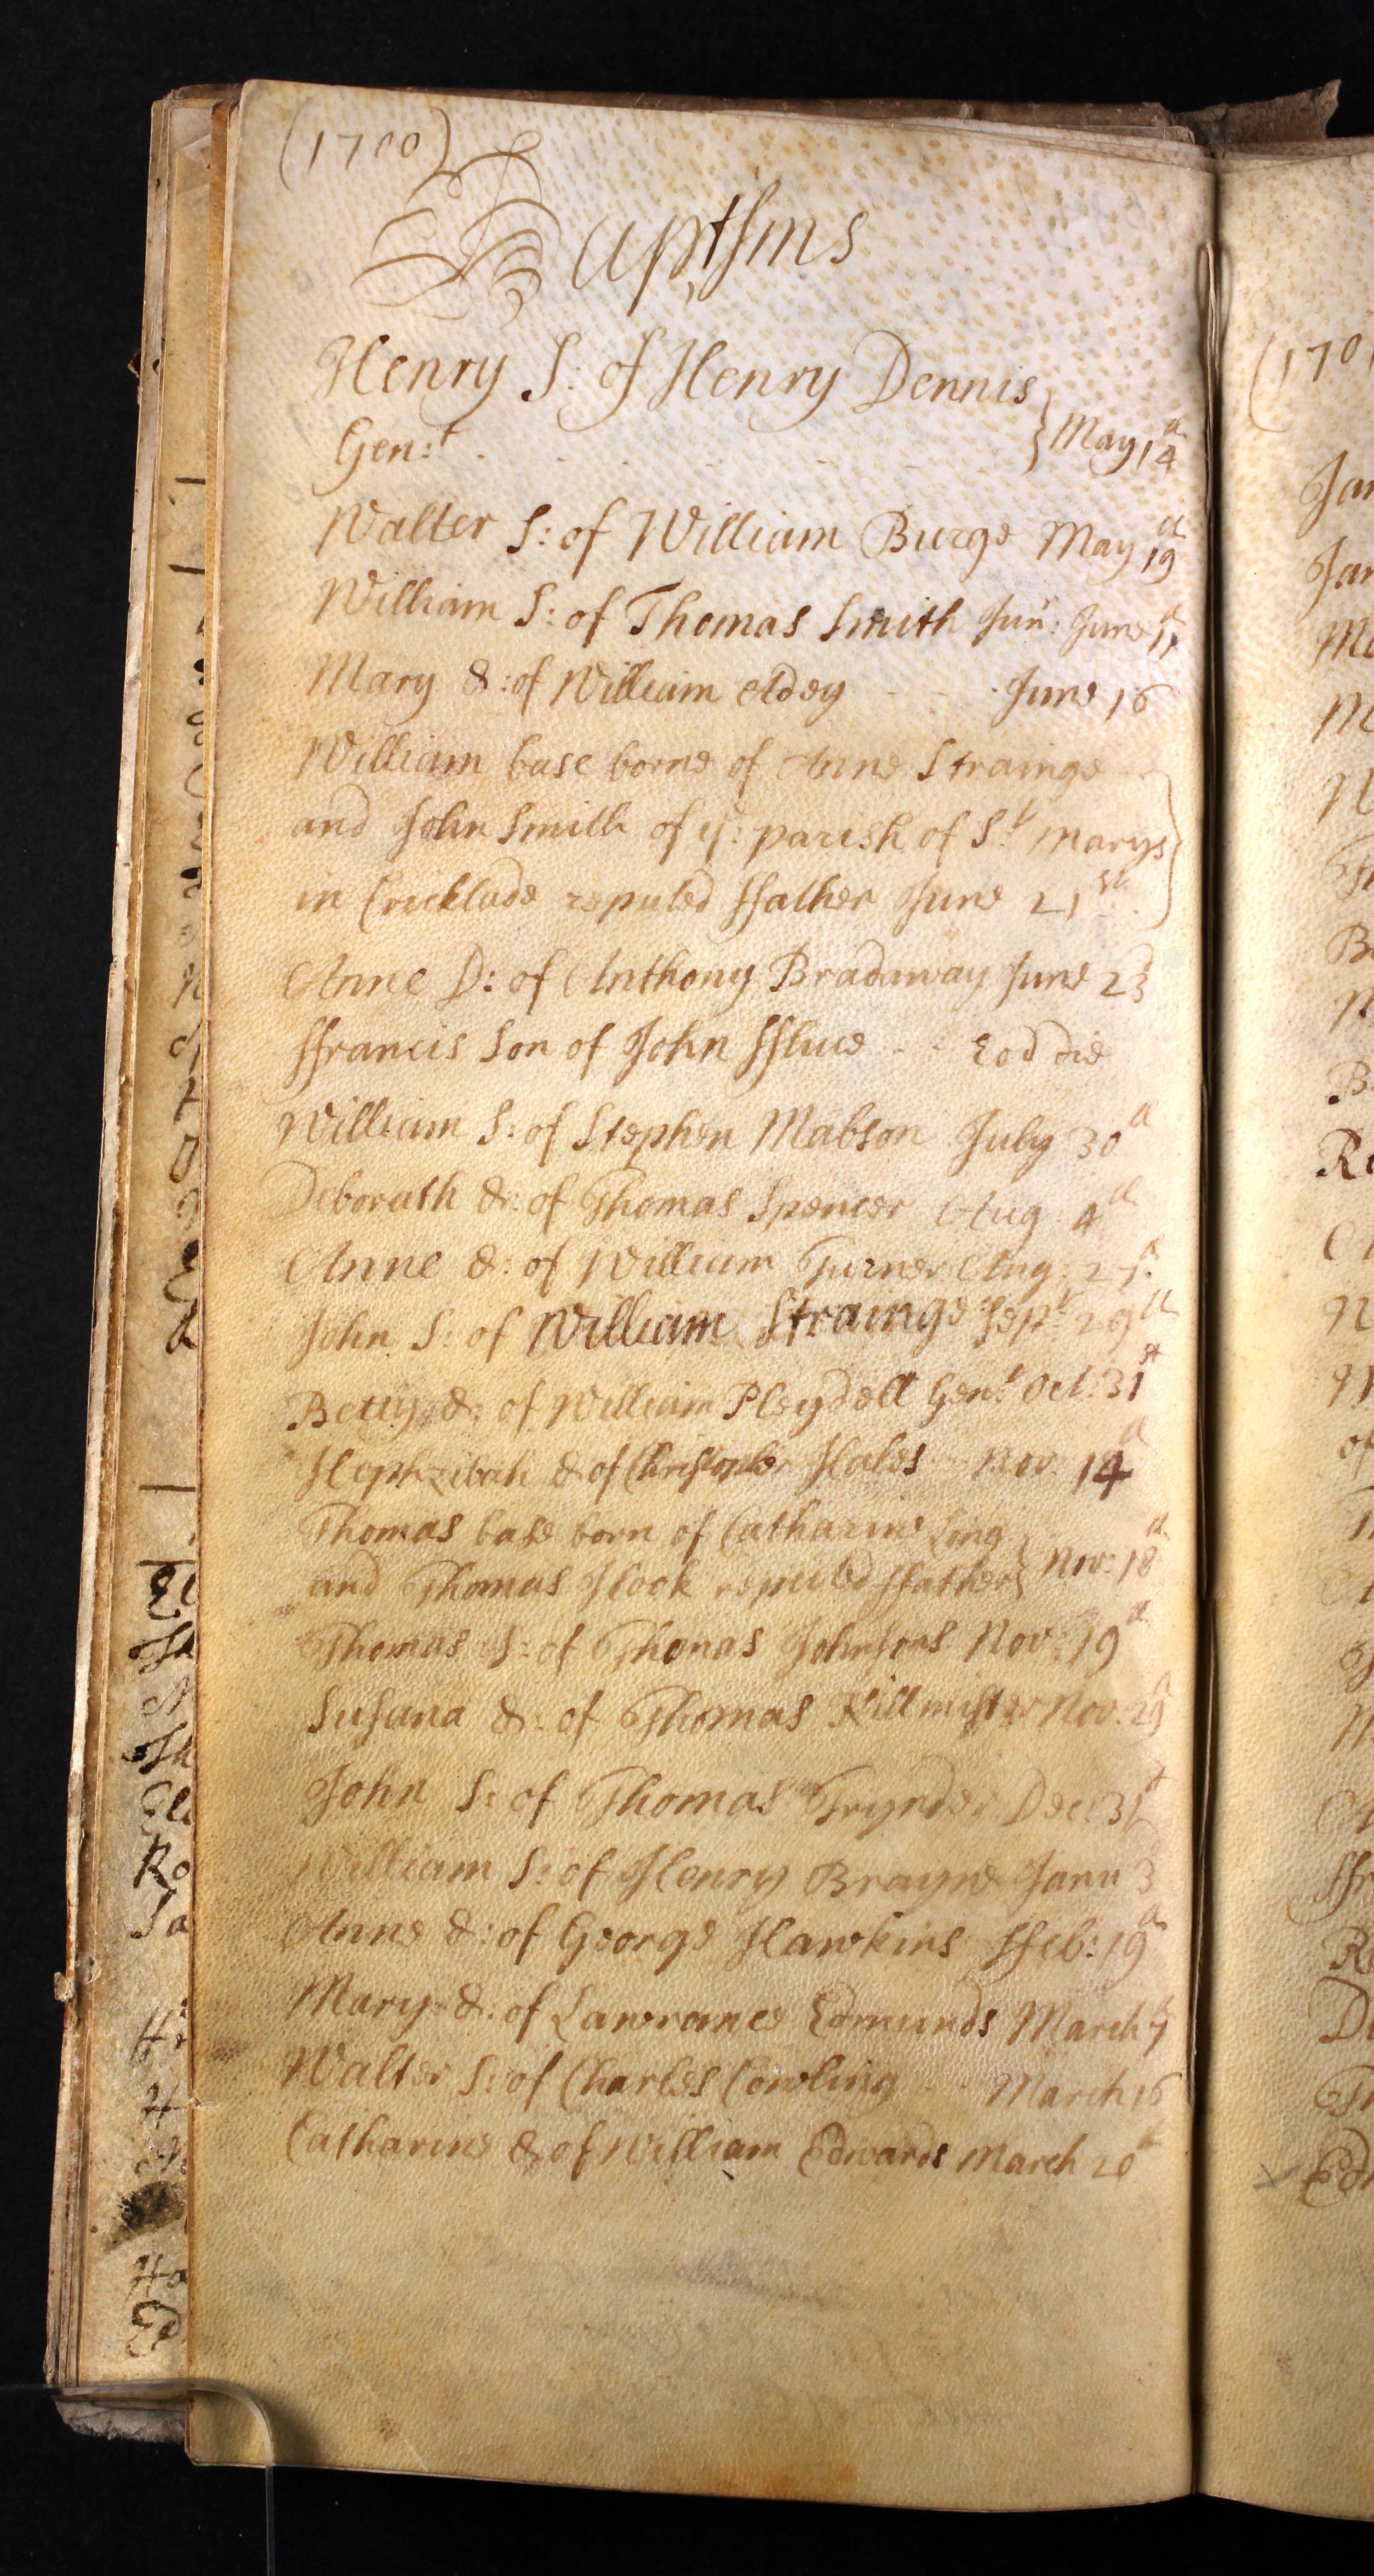 (1700)
Baptsms
Henry S: of Henry Dennis
Gen:t May 14th
Walter S: of William Burge May 19th
William S: of Thomas Smith Jun: June 11th
Mary d: of William Adey June 16
William base borne of Anne Strainge
and John Smith of ye: parish of St Marys
in Cricklade reputed ffather June 21st
Anne D: of Anthony Bradaway June 23
ffrancis Son of John ffluce Eod die
William S: of Stephen Mabson July 30th
Deborath d: of Thomas Spencer Aug: 4th
Anne d: of William Turner Aug:
John S: of William Strainge Sept 29th
Betty d: of William Pleydell Gent Oct: 31st
Hephzibah d of Christopher Hales Nov: 14th
Thomas base born of Catharine Ling
and Thomas Hook reputed ffather Nov: 18th
Thomas S: of Thomas Johnsons Nov: 19th
Susana d: of Thomas Killmister Nov: 29th
John S: of Thomas Trynder Dec: 31st
William S: of Henry Brayne Janu 3
Anne d: of George Hawkins ffeb: 19th
Mary d: of Lawrance Edmunds March 7
Walter S: of Charles Cowling March 16
Catharine d of William Edwards March 20th